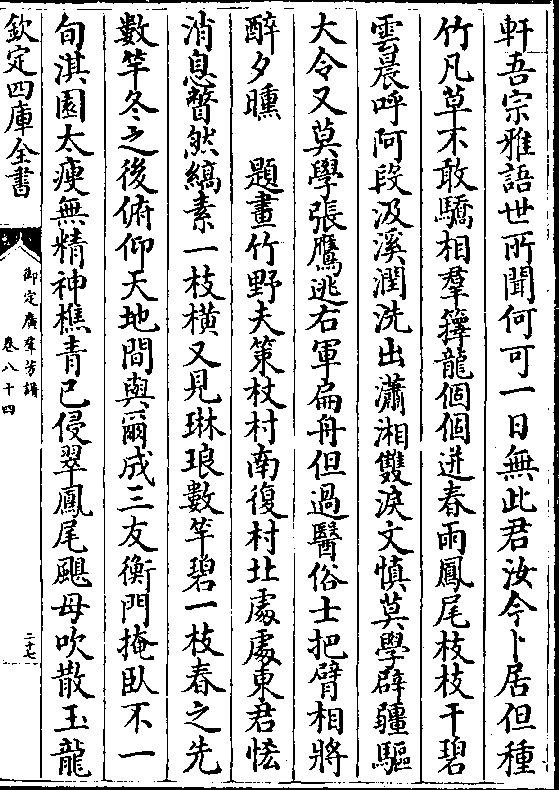 軒吾宗雅語世所聞何可一日無此君汝今卜居但種
竹凡草不敢驕相羣籜龍個個迸春雨鳳尾枝枝干碧
雲晨呼阿段汲溪潤洗出瀟湘雙淚文慎莫學辟疆驅
大令又莫學張廌逃右軍扁舟但過醫俗士把臂相將
醉夕曛　題畫竹野夫策杖村南復村北處處東君恡
消息瞥然縞素一枝橫又見琳琅數竿碧一枝春之先
數竿冬之後俯仰天地間與爾成三友衡門掩臥不一
旬淇園太瘦無精神樵青已侵翠鳳尾颶母吹散玉龍
欽定四庫全書
御定廣羣芳譜
卷八十四